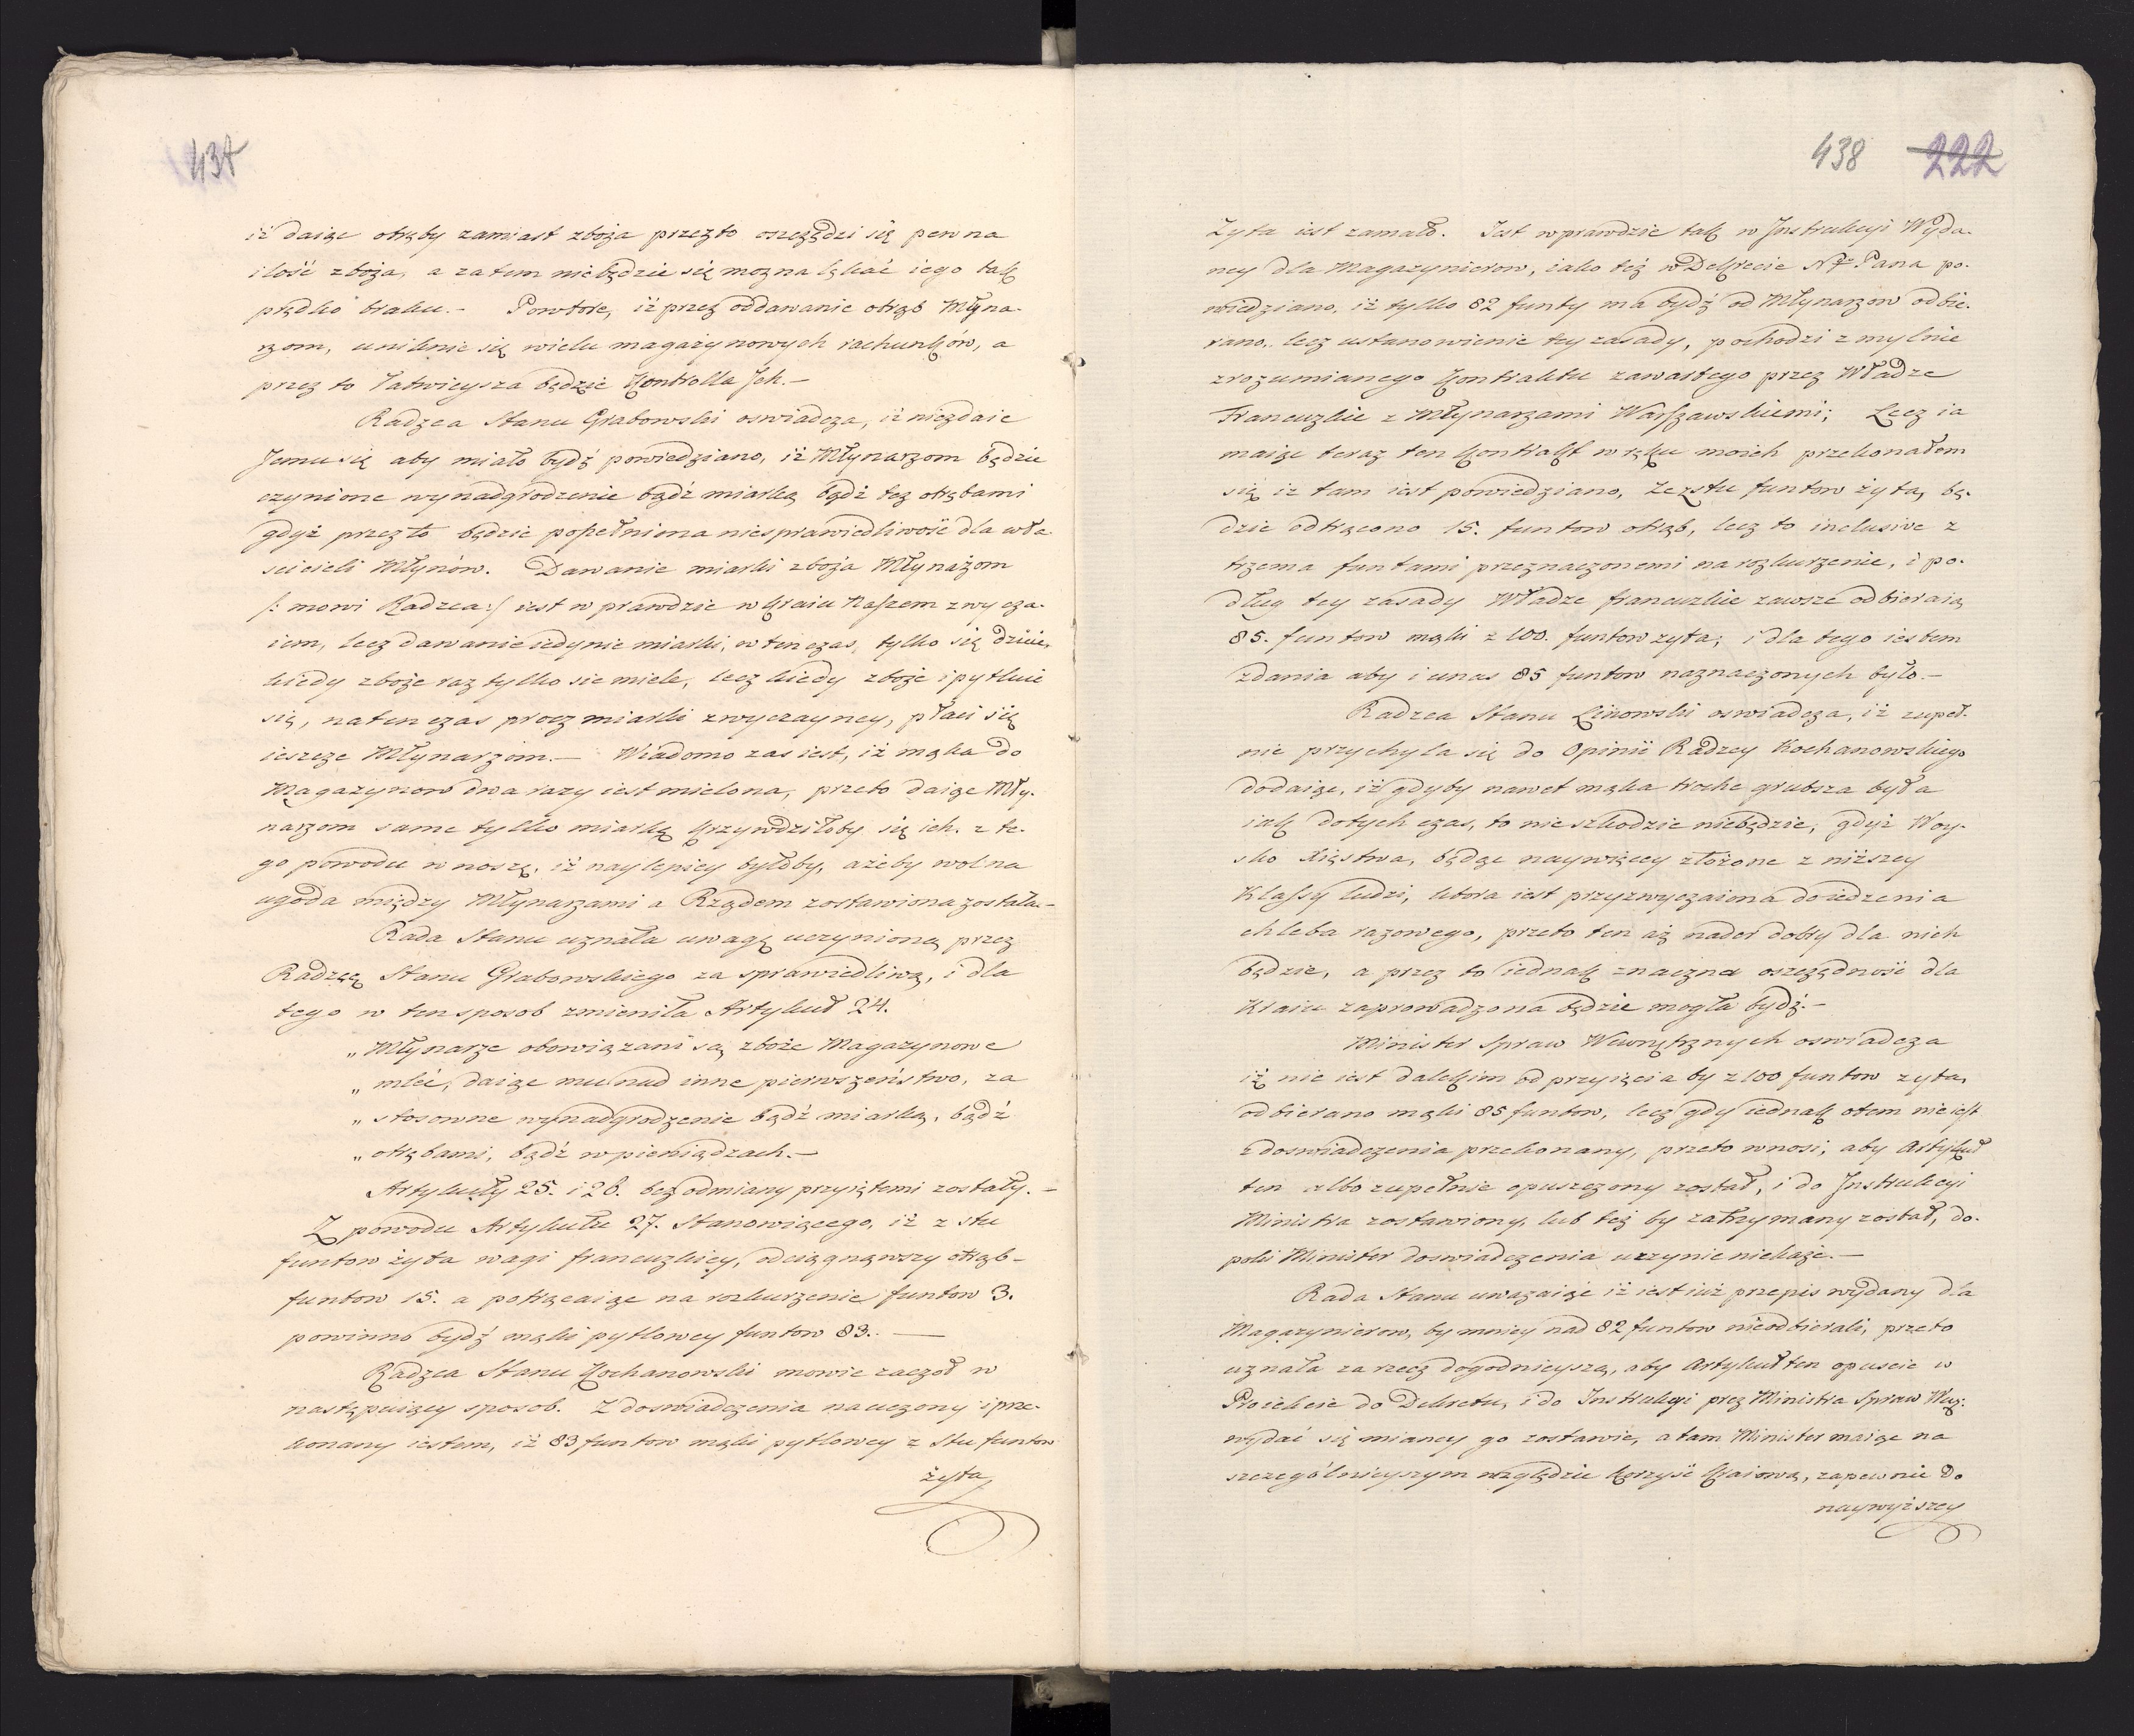 437
iż daiąc otręby zamiast zboża przezto oszczędzi się pewna
ilość zboża, a zatem niebędzie się można lękać iego tak
prędko braku.- Powtóre, iż przez oddawanie otrąb Młyna-
rzom, uniknie się wielu magazynowych rachunków, a
przez to łatwieysza będzie Kontrolla Ich.-
Radzca Stanu Grabowski oswiadcza, iż niezdaie
Jemu się aby miało bydź powiedziano, iż Młynarzom będzie
czynione wynadgrodzenie bądź miarką bądź też otrębami
gdyż przez to będzie popełniona niesprawiedliwość dla wła-
scicieli Młynów. Dawanie miarki zboża Młynażom
/: mowi Radzca:/ iest w prawdzie w Kraiu Naszem zwycza-
iem, lecz dawanie iedynie miarki, w ten czas, tylko się dzieie,
kiedy zboże raz tylko sie miele, lecz kiedy zboże i pytluie
się, naten czas procz miarki zwyczayney, płaci się
ieszcze Młynarzom.- Wiadomo zas iest, iż mąka do
Magazynow dwa razy iest mielona, przeto daiąc Mły-
narzom same tylko miarkę krzywdziłoby się ich. z te-
go powodu wnoszę, iż naylepiey byłoby, ażeby wolna
ugoda między Młynarzami a Rządem zostawiona została.-
Rada Stanu uznała uwagę uczynioną przez
Radzcę Stanu Grabowskiego za sprawiedliwą, i dla
tego w ten sposob zmieniła Artykuł 24.
„ Młynarze obowiązani są zboże Magazynowe
„ mleć, daiąc mu nad inne pierwszeństwo, za
„ stosowne wynadgrodzenie bądź miarką, bądź
„ otrębami, bądź w pieniądzach.-
Artykuły 25. i 26. bez odmiany przyiętemi zostały.-
Z powodu Artykułu 27. Stanowiącego, iż z stu
funtow żyta wagi francuzkiey, odciągnąwszy otrąb-
funtow 15. a potrącaiąc na rozkurzenie funtow 3.
powinno bydź mąki pytlowey funtow 83.. —
Radzca Stanu Kochanowski mowic zaczoł w
następuiący sposob. Z doswiadczenia nauczony i prze-
konany iestem, iż 83 funtow mąki pytlowey z Stu funtow
żyta,
438 222
Zyta iest zamało. Jest w prawdzie tak w Instrukcyi Wyda-
ney dla Magazynierow, iako też w Dekrecie Ngo Pana po-
wiedziano, iż tylko 82 funty ma bydź od Młynarzow odbie-
rano, lecz ustanowienie tey zasady, pochodzi z mylnie
zrozumianego Kontraktu zawartego przez Władze
Francuzkie z Młynarzami Warszawskiemi; Lecz ia
maiąc teraz ten Kontrakt w ręku moich przekonałem
się iż tam iest powiedziano, że z stu funtow żyta, bę-
dzie odtrącono 15. funtow otrąb, lecz to inclusive z
trzema funtami przeznaczonemi na rozkurzenie, i po-
dług tey zasady Władze francuzkie zawsze odbieraią
85. funtow mąki z 100. funtow zyta; i dla tego iestem
zdania aby i u nas 85 funtow naznaczonych było.-
Radzca Stanu Linowski oswiadcza, iż zupeł-
nie przychyla się do Opinii Radzcy Kochanowskiego
dodaiąc, iż gdyby nawet mąka troche grubsza była
iak dotych czas, to nie szkodzie niebędzie, gdyż Woy-
sko Xięstwa, będąc naywięcey złożone z niższey
Klassy ludzi, ktora iest przyzwyczaiona do iedzenia
chleba razowego, przeto ten aż nader dobry dla nich
będzie, a przez to iednak znaczna oszczędność dla
Kraiu zaprowadzona będzie mogła bydź.-
Minister Spraw Wewnętrznych oswiadcza
iż nie iest dalekim od przyięcia by z 100 funtow zyta,
odbierano mąki 85 funtow, lecz gdy iednak otem nie iest
z doswiadczenia przekonany, przeto wnosi, aby Artykuł
ten albo zupełnie opuszczony został, i do Instrukcyi
Ministra zostawiony, lub też by zatrzymany został, do-
poki Minister doswiadczenia uczynic niekaże.-
Rada Stanu uwazaiąc iż iest iuż przepis wydany dla
Magazynierow, by mniey nad 82 funtow nieodbierali, przeto
uznała za rzecz dogodnieyszą, aby Artykuł ten opuscic w
Proiekcie do Dekretu, i do Instrukcyi prez Ministra Spraw Wewz:
wydać się mianey go zostawic, a tam Minister maiąc na
szczególnieyszym względzie korzyść Kraiową, zapewnie do
naywyższey